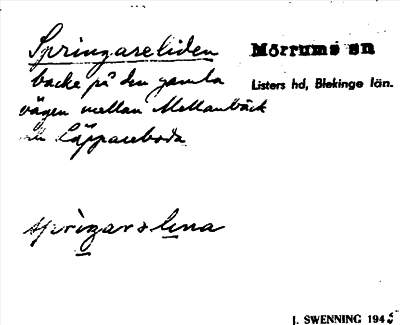 Springareliden
Mörrums sn
backe på den gamla
Listers hd, Blekinge län.
vägen mellan Mellanbäck
Läppareboda
J. SWENNING 1945